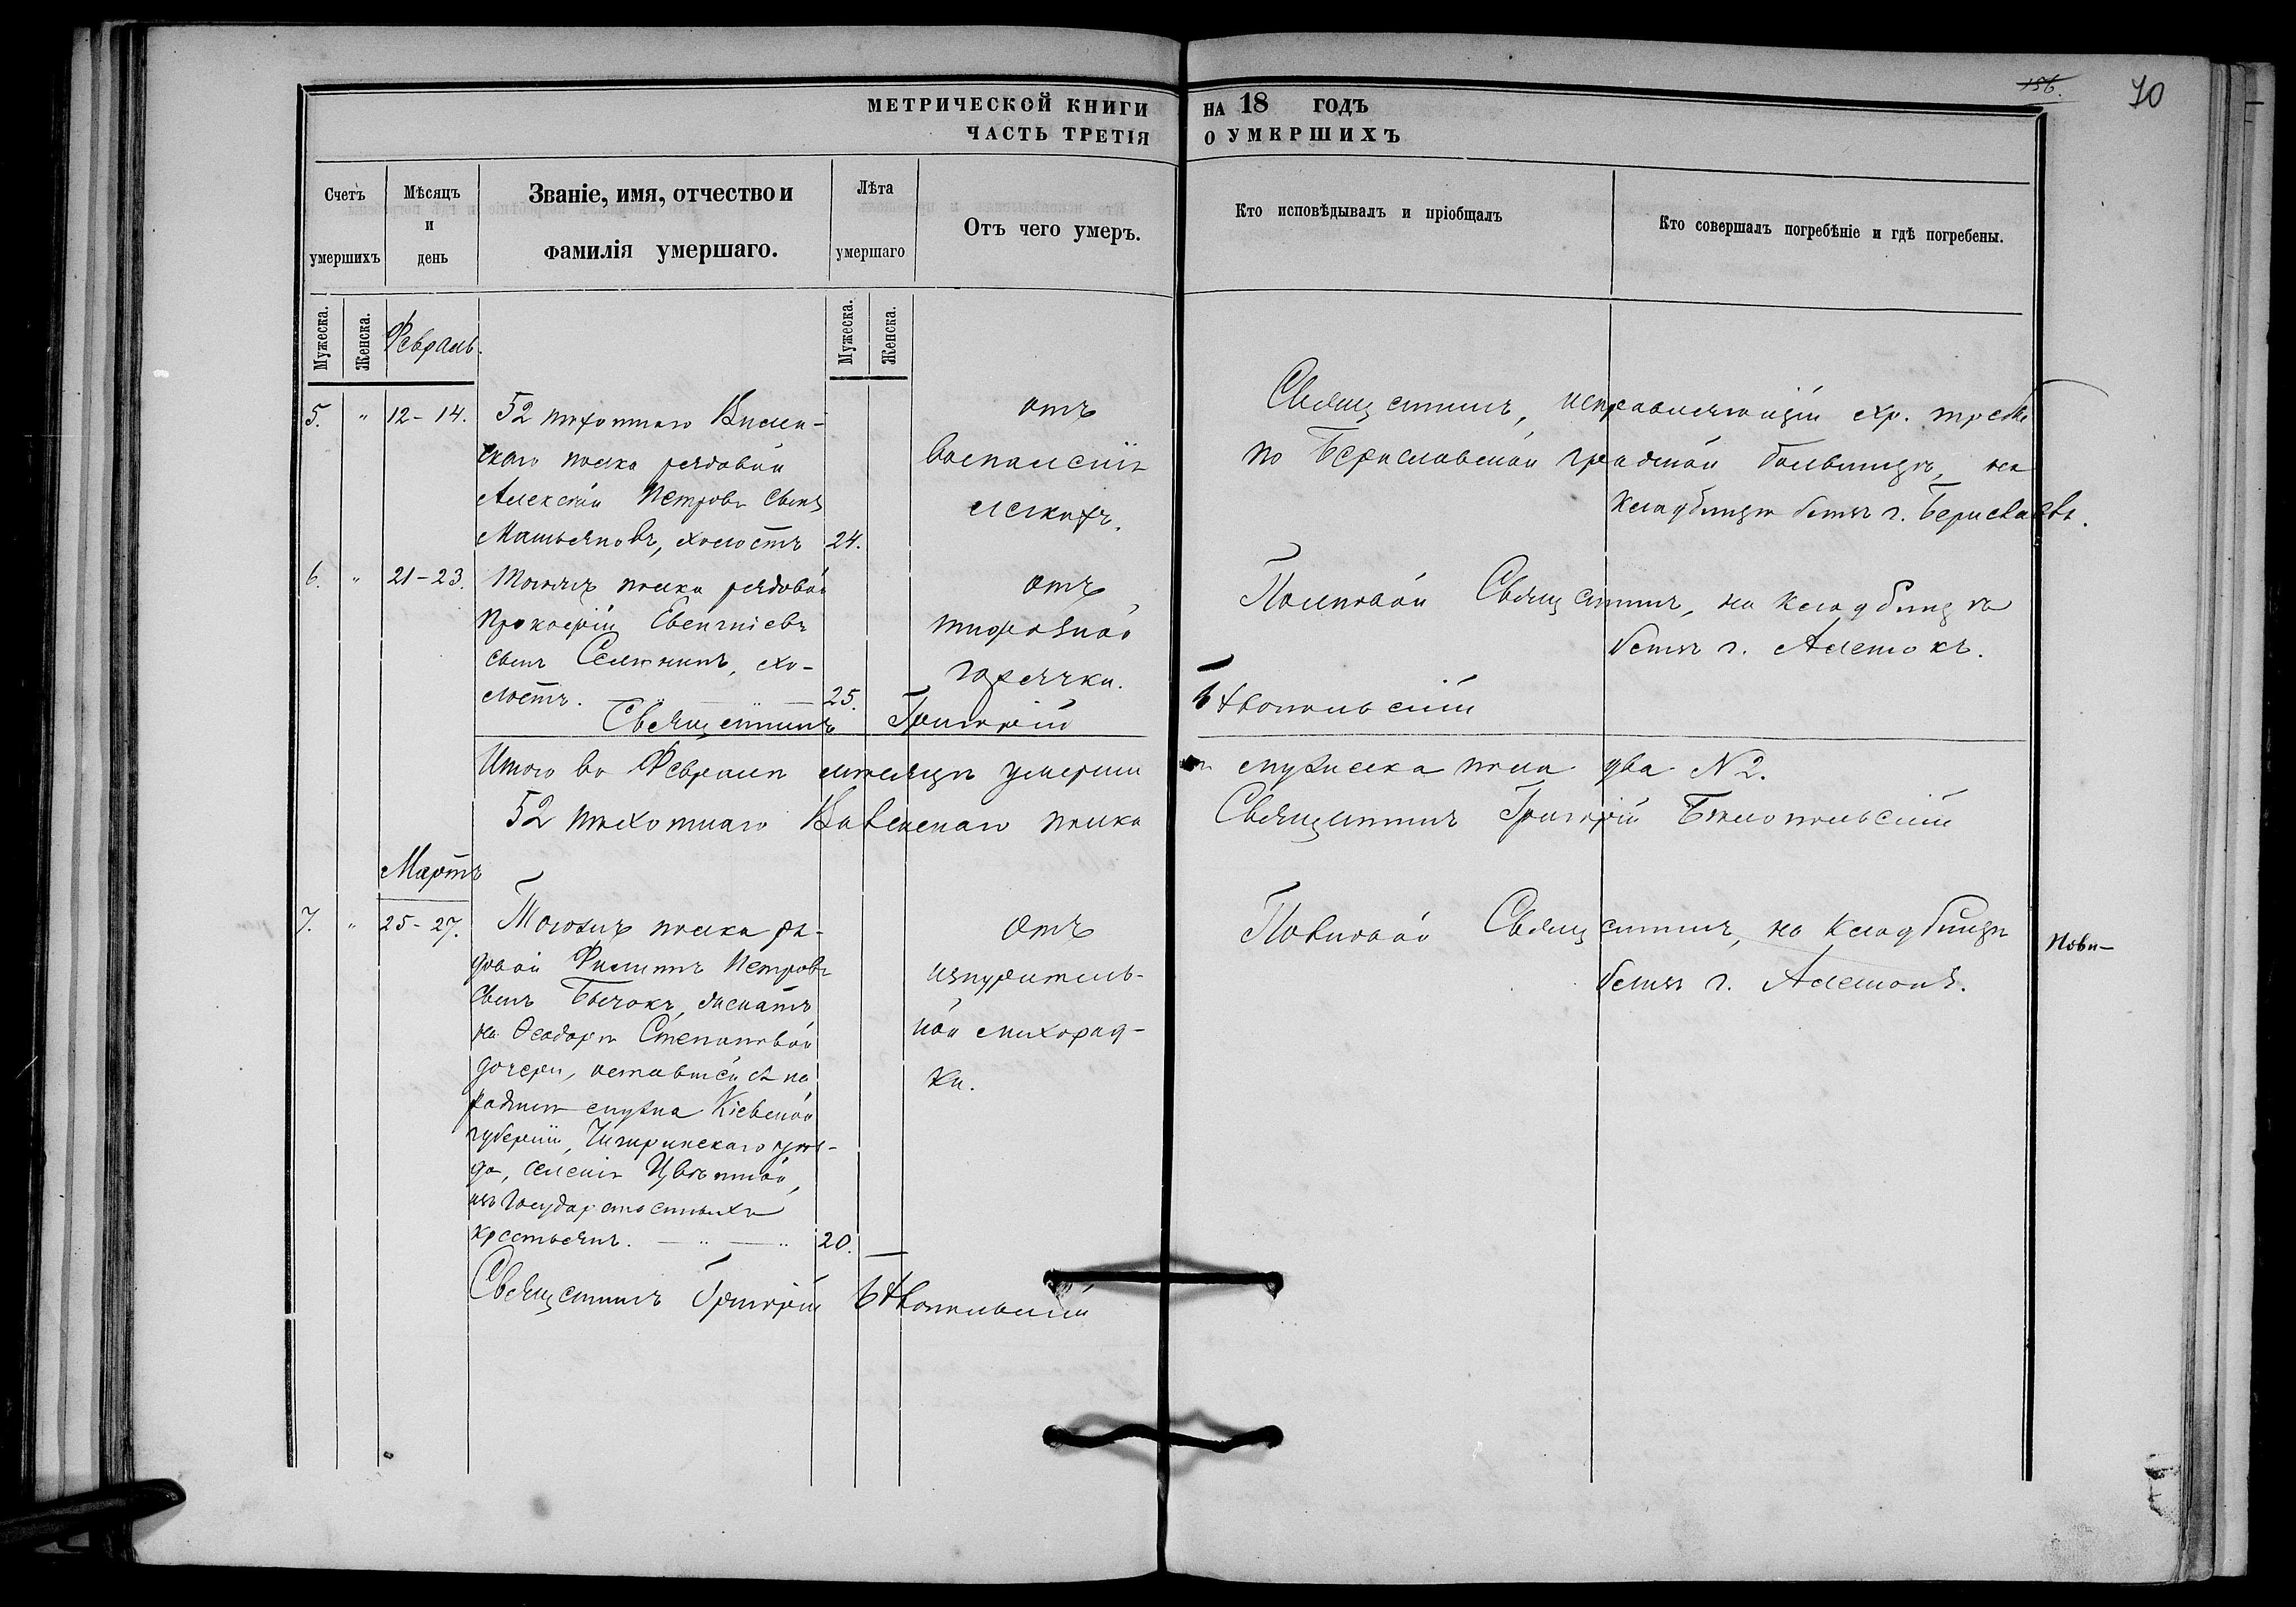 156.
70
МЕТРИЧЕСКОЙ КНИГИ НА 18 ГОДЪ
ЧАСТЬ ТРЕТІЯ О УМЕРШИХЪ
Счетъ умершихъ
Мѣсяцъ и день
Званіе, имя, отчество и фамилія умершаго.
Лѣта умершаго
Отъ чего умеръ.
Кто исповѣдывалъ и пріобщалъ
Кто совершалъ погребѣніе и гдѣ погребены.
Мужеска.
Женска.
Февраль.
Мужеска.
Женска.
5. " 12-14.
52 пѣхотнаго Вилен-
скаго полка рядовой
Алексѣй Петровъ сынъ
холостъ 24.
отъ
воспаленія
легкихъ.
Священникъ, исправляющій хр. требы
по Бериславской градской больницѣ, на
кладбищѣ близъ г. Бериславъ.
6. " 21-23.
Тогожъ полка рядовой
Прокофій Евгеніевъ
сынъ хо-
лостъ. 25.
отъ
тифозной
горячки.
Полковой Священникъ, на кладбищѣ
близъ г. Алешокъ.
Священникъ Григорій Бѣлопольскій
Итого въ Февралѣ мѣсяцѣ умерши
мужеска пола два № 2.
52 пѣхотнаго Виленскаго полка
Священникъ Григорій Бѣлопольскій
Мартъ
7. " 25-27.
Тогожъ полка ря-
довой Филиппъ Петровъ
сынъ Бычокъ, женатъ
на Ѳеодорѣ Степановой
дочери, оставшейся на
родинѣ мужа Кіевской
губерніи, Чигиринскаго уѣз-
да, селенія Цвѣтной,
изъ государственныхъ
крестьянъ. 20.
отъ
изнуритель-
ной лихорад-
ки.
Полковой Священникъ, на кладбищѣ
близъ г. Алешокъ.
Священникъ Григорій Бѣлопольскій